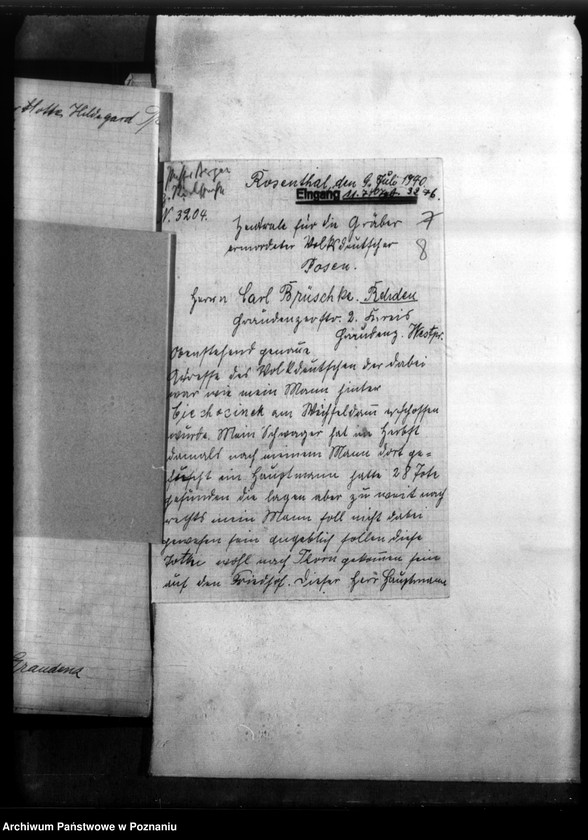 Hildegard
Rosenthal, den 9. Juli 1940.
Eingang 11.7.
N. 3204.
Zentrale für die Gräber 7
ermordeter Volksdeutscher 8
Posen.
Herrn Carl Brüschke. Rehden
Graudenzerstr. 2. Kreis
Graudenz. Westpr.
Obenstehend genaue
Adresse des Volksdeutschen der dabei
war wie mein Mann hinter
Ciechocinek am Weichseldamm erschossen
wurde. Mein Schwager hat im Herbst
damals nach meinem Mann dort ge-
ein Hauptmann hatte 28 Tote
gefunden die lagen aber zu weit nach
rechts mein Mann soll nicht dabei
gewesen sein angeblich sollen diese
Totte wohl nach Thorn gekommen sein
auf den Friedhof. Dieser Herr Hauptmann
Graudenz
Archiwum Państwowe w Poznaniu